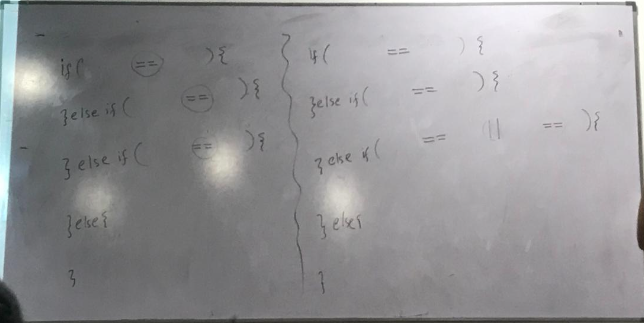 if(            ==            ){
}else if(            ==            ){
} else if (            ==            ){
}else{
}
if(            ==            ) {
}else if(            ==            ) {
} else if(            ==            ||            ==            ){
} else{
}